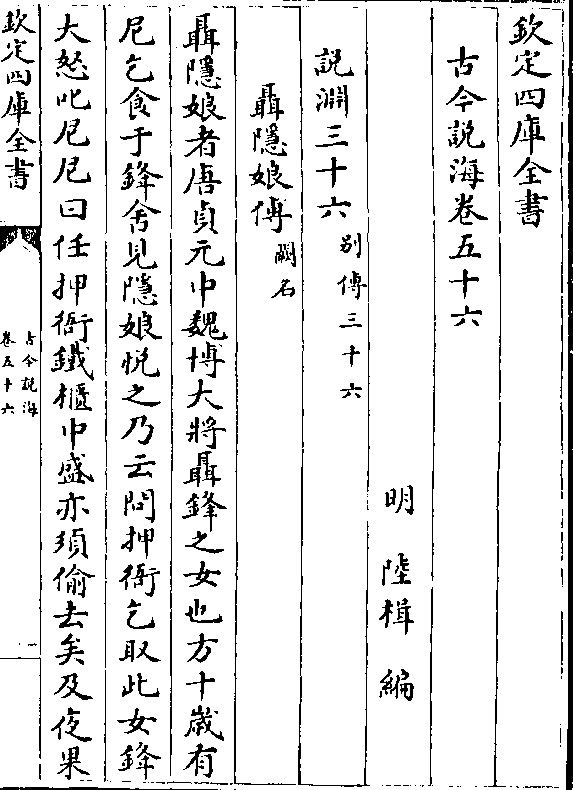 欽定四庫全書
古今説海卷五十六
明 陸楫 編
説淵三十六 别傳三十六
聶隱娘傳 闕名
聶隱娘者唐貞元中魏博大將聶鋒之女也方十歲有
尼乞食于鋒舍見隱娘悦之乃云問押衙乞取此女鋒
大怒叱尼尼曰任押衙鐵櫃中盛亦須偷去矣及夜果
欽定四庫全書
古今説海
卷五十六
一